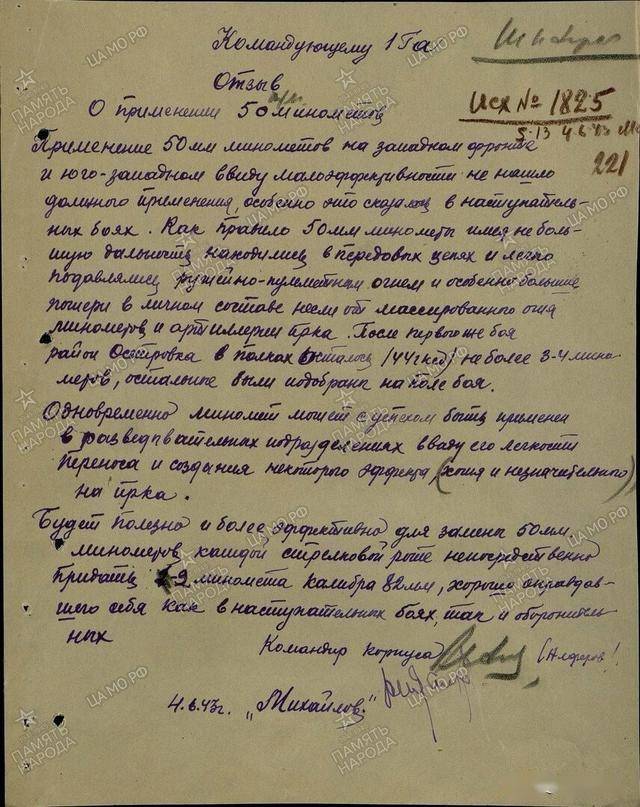 Командующему 1 Га
Отзыв
О применении 50 м/м минометов
Исх № 1825
5-13 4.6.43
221
Применение 50мм минометов на западном фронте
и юго-западном ввиду малоэффективности не нашло
должного применения, особенно это сказалось в наступатель-
ных боях. Как правило 50мм минометы имея неболь-
шую дальность находились в передовых цепях и легко
подавлялись ружейно-пулеметным огнем и особенно большие
потери в личном составе несли от массированного огня
минометов и артиллерии пр-ка. После первого же боя
район Островка в полках осталось /44гксд/ не более 3-4 мино-
метов, остальные были подобраны на поле боя.
Одновременно миномет может с успехом быть применен
в разведывательных подразделениях ввиду его легкости
переноса и создания некоторого эффекта (хотя и незначительного)
на пр-ка.
Будет полезно и более эффективно для замены 50мм.
минометов каждой стрелковой роте непосредственно
придать 2 миномета калибра 82мм, хорошо оправдав-
шего себя как в наступательных боях, так и оборонитель-
ных
Командир корпуса (Алферов)
4.6.43г. "Михайлов"
ПАМЯТЬ НАРОДА
ЦАМО РФ